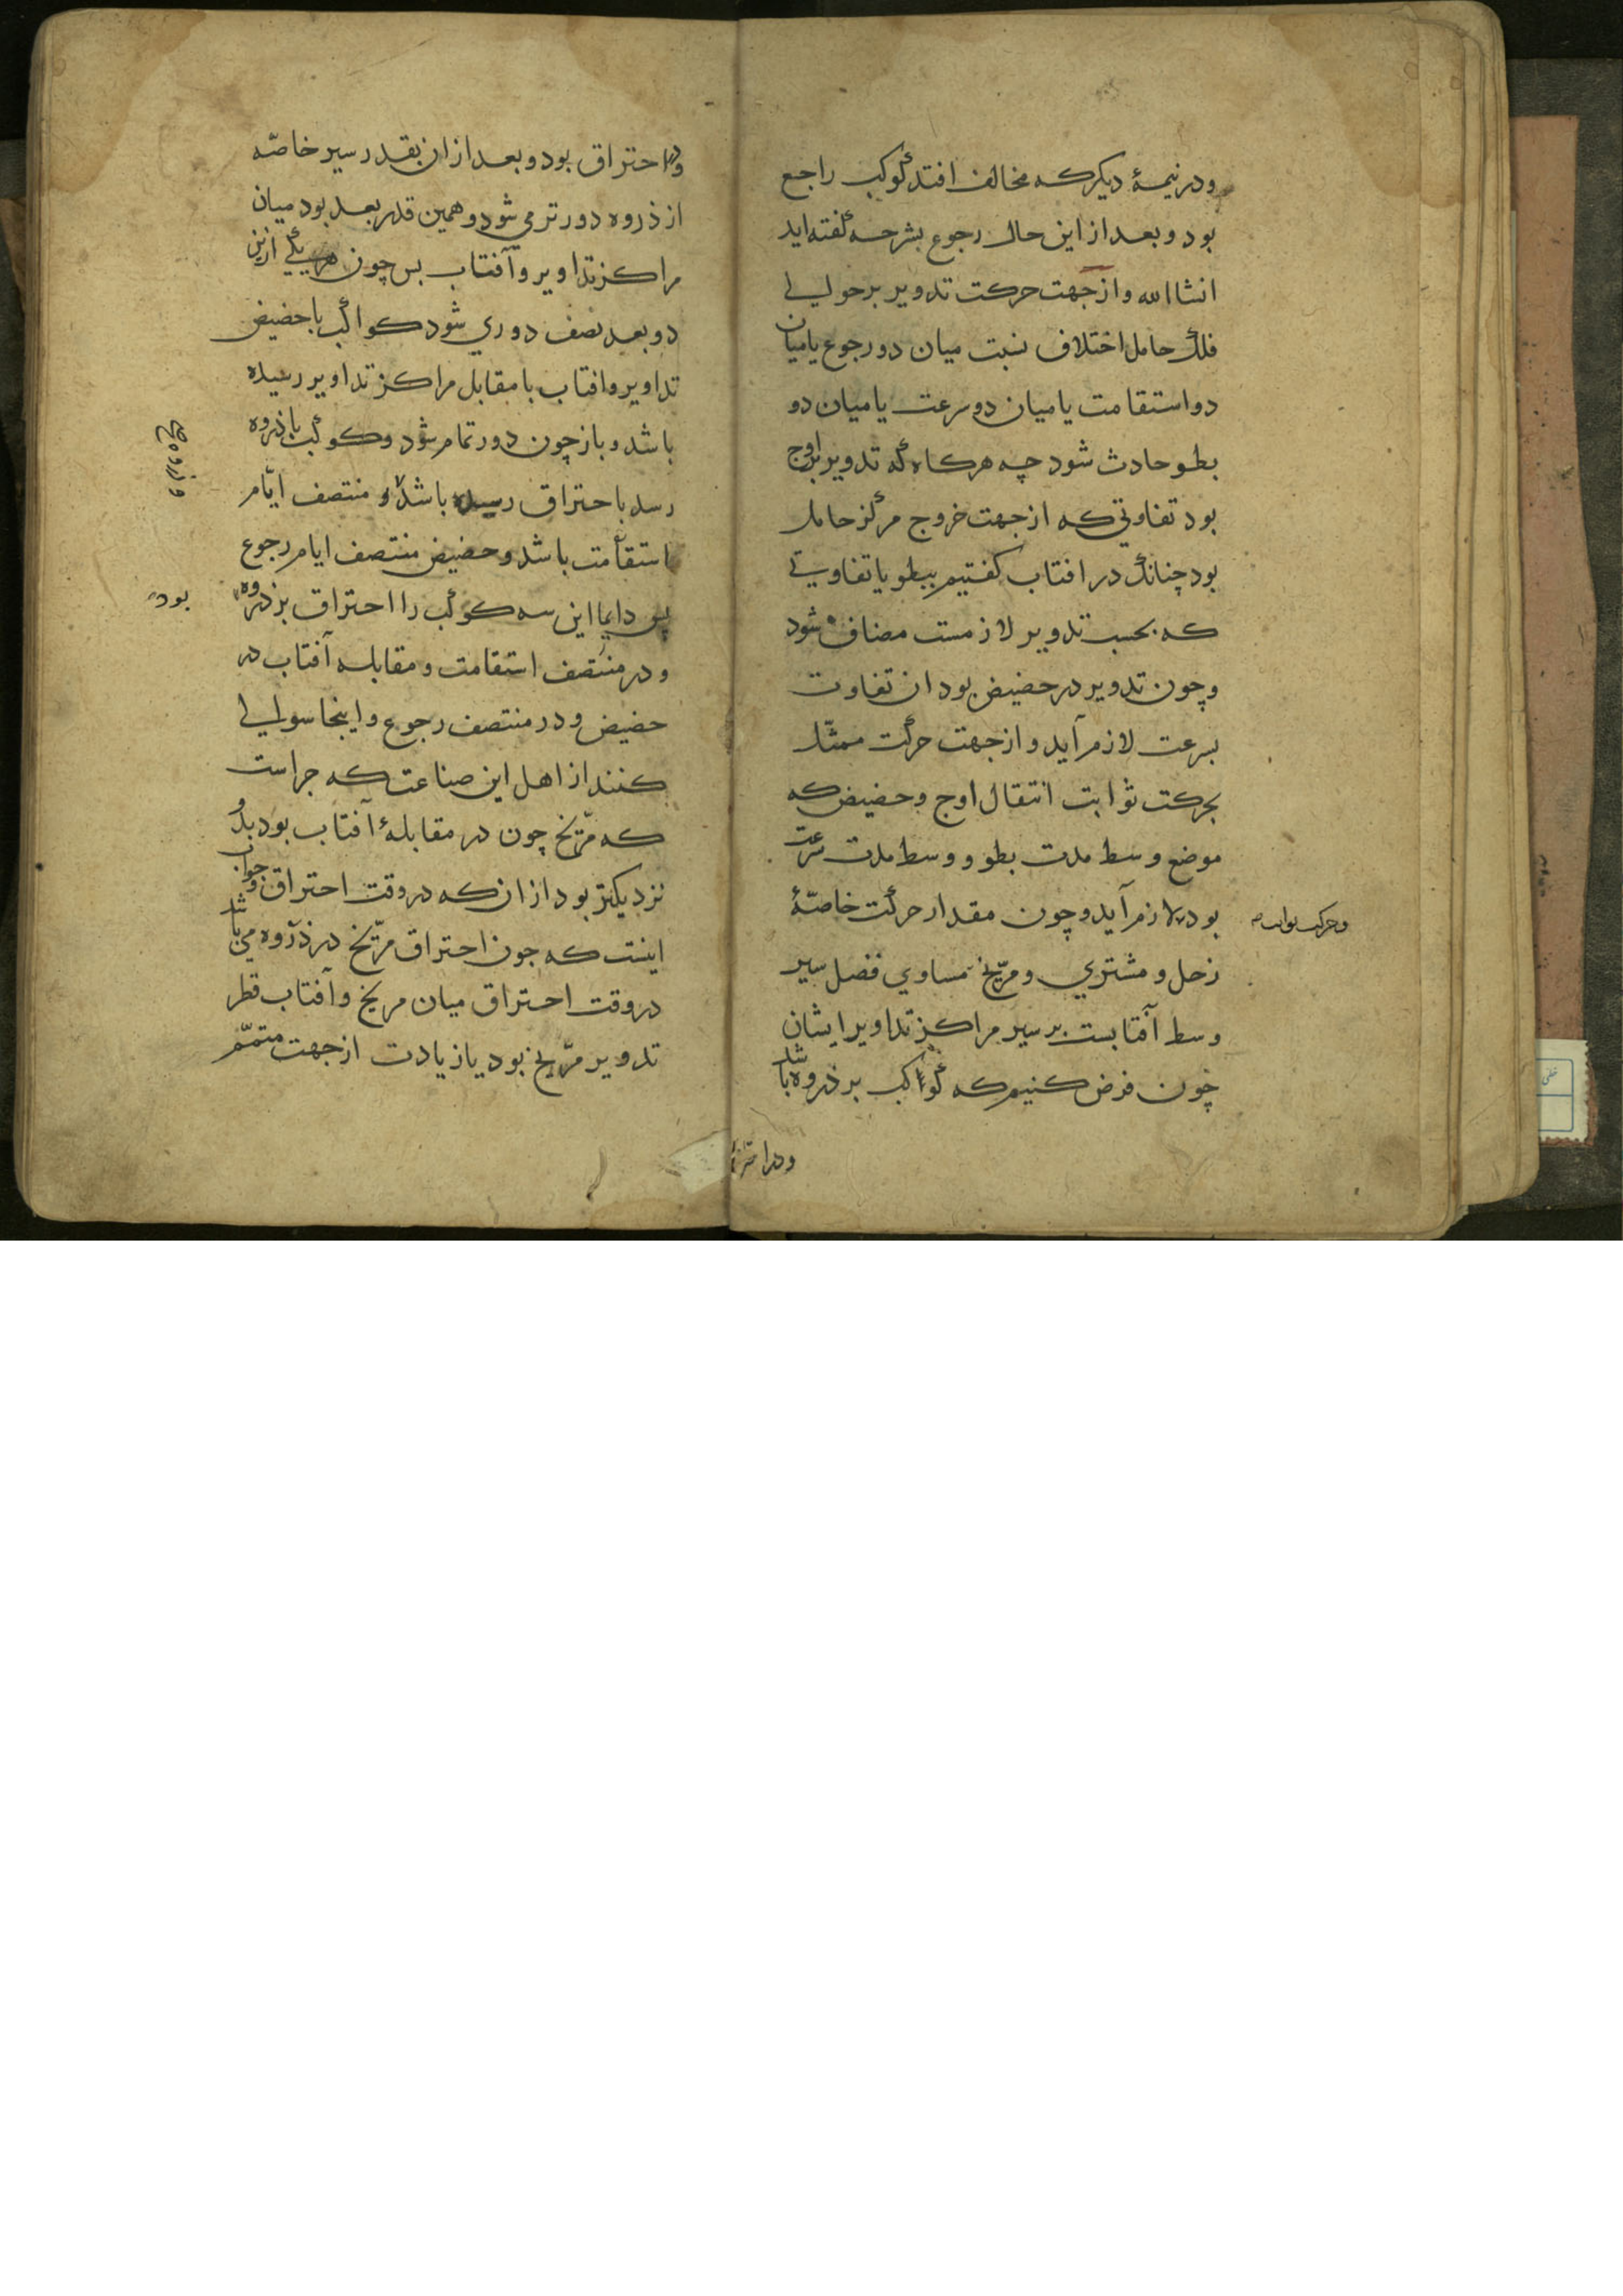 ودر نیمهٔ دیکر که مخالف افتد کوکب راجع
بود و بعد از این حال رجوع بشرحه کفته اید
انشاالله و از جهت حرکت تدویر بر حوالی
فلک حامل اختلاف نسبت میان دو رجوع یا میان
دو استقامت یا میان دو سرعت یا میان دو
بطو حادث شود چه هرکاه که تدویر بر اوج
بود تفاوتی که از جهت خروج مرکز حامل
بود چنانک در افتاب کفتیم ببطو یا تفاوتی
که بحسب تدویر لازمست مضاف شود
وچون تدویر در حضیض بود ان تفاوت
بسرعت لازم آید و از جهت حرکت ممثل
بحرکت ثوابت انتقال اوج وحضیض که
موضع وسط مدت بطو و وسط مدت سرعت
بود لازم آید وچون مقدار حرکت خاصّهٔ
وحرکت ثوابت
زحل و مشتری و مرّیخ مساوی فضل سیر
وسط آفتابست بر سیر مراکز تداویر ایشان
چون فرض کنیم که کواکب بر ذروه باشد
ودر احتراق
ودر احتراق بود و بعد از ان بقدر سیر خاصّه
از ذروه دورتر می شود و همین قدر بعد بود میان
مراکز تداویر و آفتاب بس چون هر یکی ازین
دو بعد نصف دوری شود کواکب با حضیض
تداویر و افتاب با مقابل مراکز تداویر رسیده
باشد و باز چون دور تمام شود و کوکب با ذروه
رسد با احتراق رسیده باشد و منتصف ایّام
استقامت باشد و حضیض منتصف ایام رجوع
پس دایما این سه کوکب را احتراق بر ذروه
بود
و در منتصف استقامت و مقابله آفتاب در
حضیض و در منتصف رجوع و اینجا سوالی
کنند از اهل این صناعت که جراست
که مرّیخ چون در مقابلهٔ آفتاب بود بدو
نزدیکتر بود از ان که در وقت احتراق وجواب
اینست که جون احتراق مرّیخ در ذروه می باشد
در وقت احتراق میان مریخ و آفتاب قطر
تدویر مرّیخ بود یا زیادت از جهت متمّم